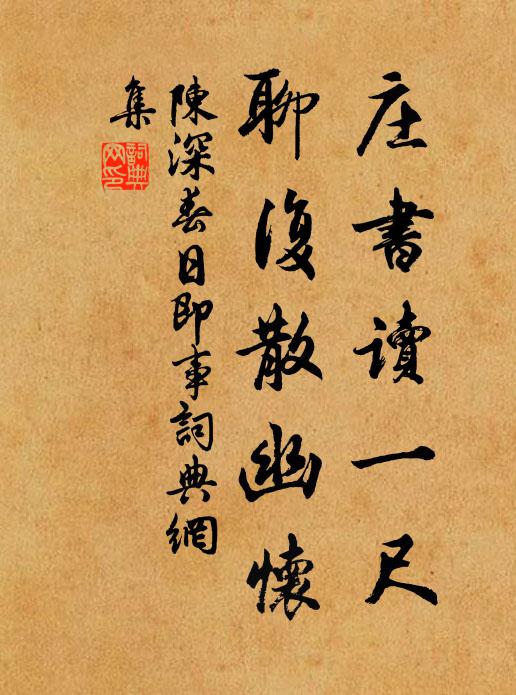 庄書讀一尺
聊復散幽懷
陳深春日即事詞典網
集
詞典網印